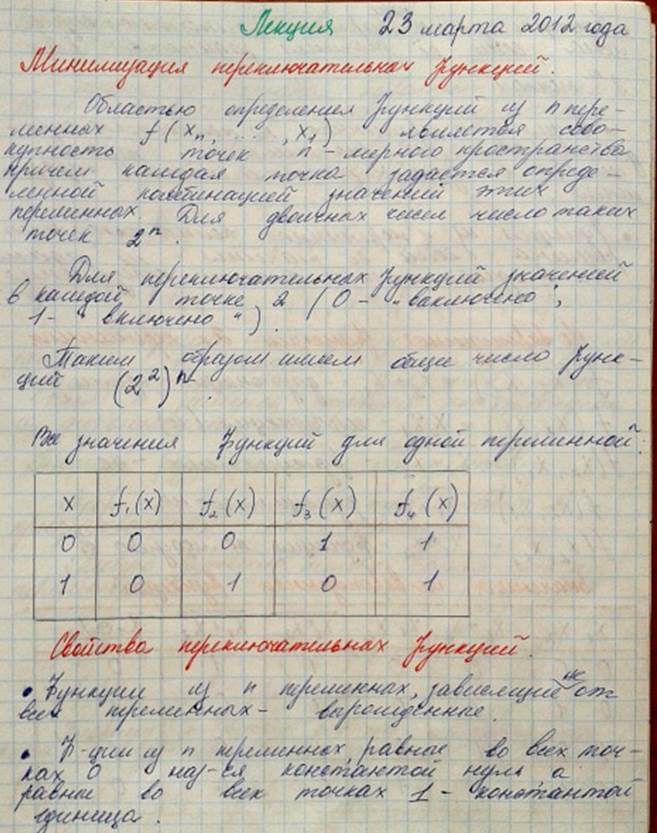 Лекция 23 марта 2012 года
Минимизация переключательных функций.
Областью определения функций из n пере-
менных f(xn, ..., x1) является сово-
купность точек n-мерного пространства
причем каждая точка задается опреде-
ленной комбинацией значений этих
переменных. Для двоичных чисел число таких
точек 2ⁿ.
Для переключательных функций значений
в каждой точке 2 (0 - "выключено",
1 - "включено").
Таким образом имеем общее число функ-
ций (2²)ⁿ.
Все значения функций для одной переменной:
x f₁(x) f₂(x) f₃(x) f₄(x)
0 0 0 1 1
1 0 1 0 1
Свойства переключательных функций.
• Функции из n переменных, зависящий не от
всех переменных - вырожденные.
• Ф-ции из n переменных, равные во всех точ-
ках 0 наз-ся константой нуль а
равные во всех точках 1 - константой
единица.